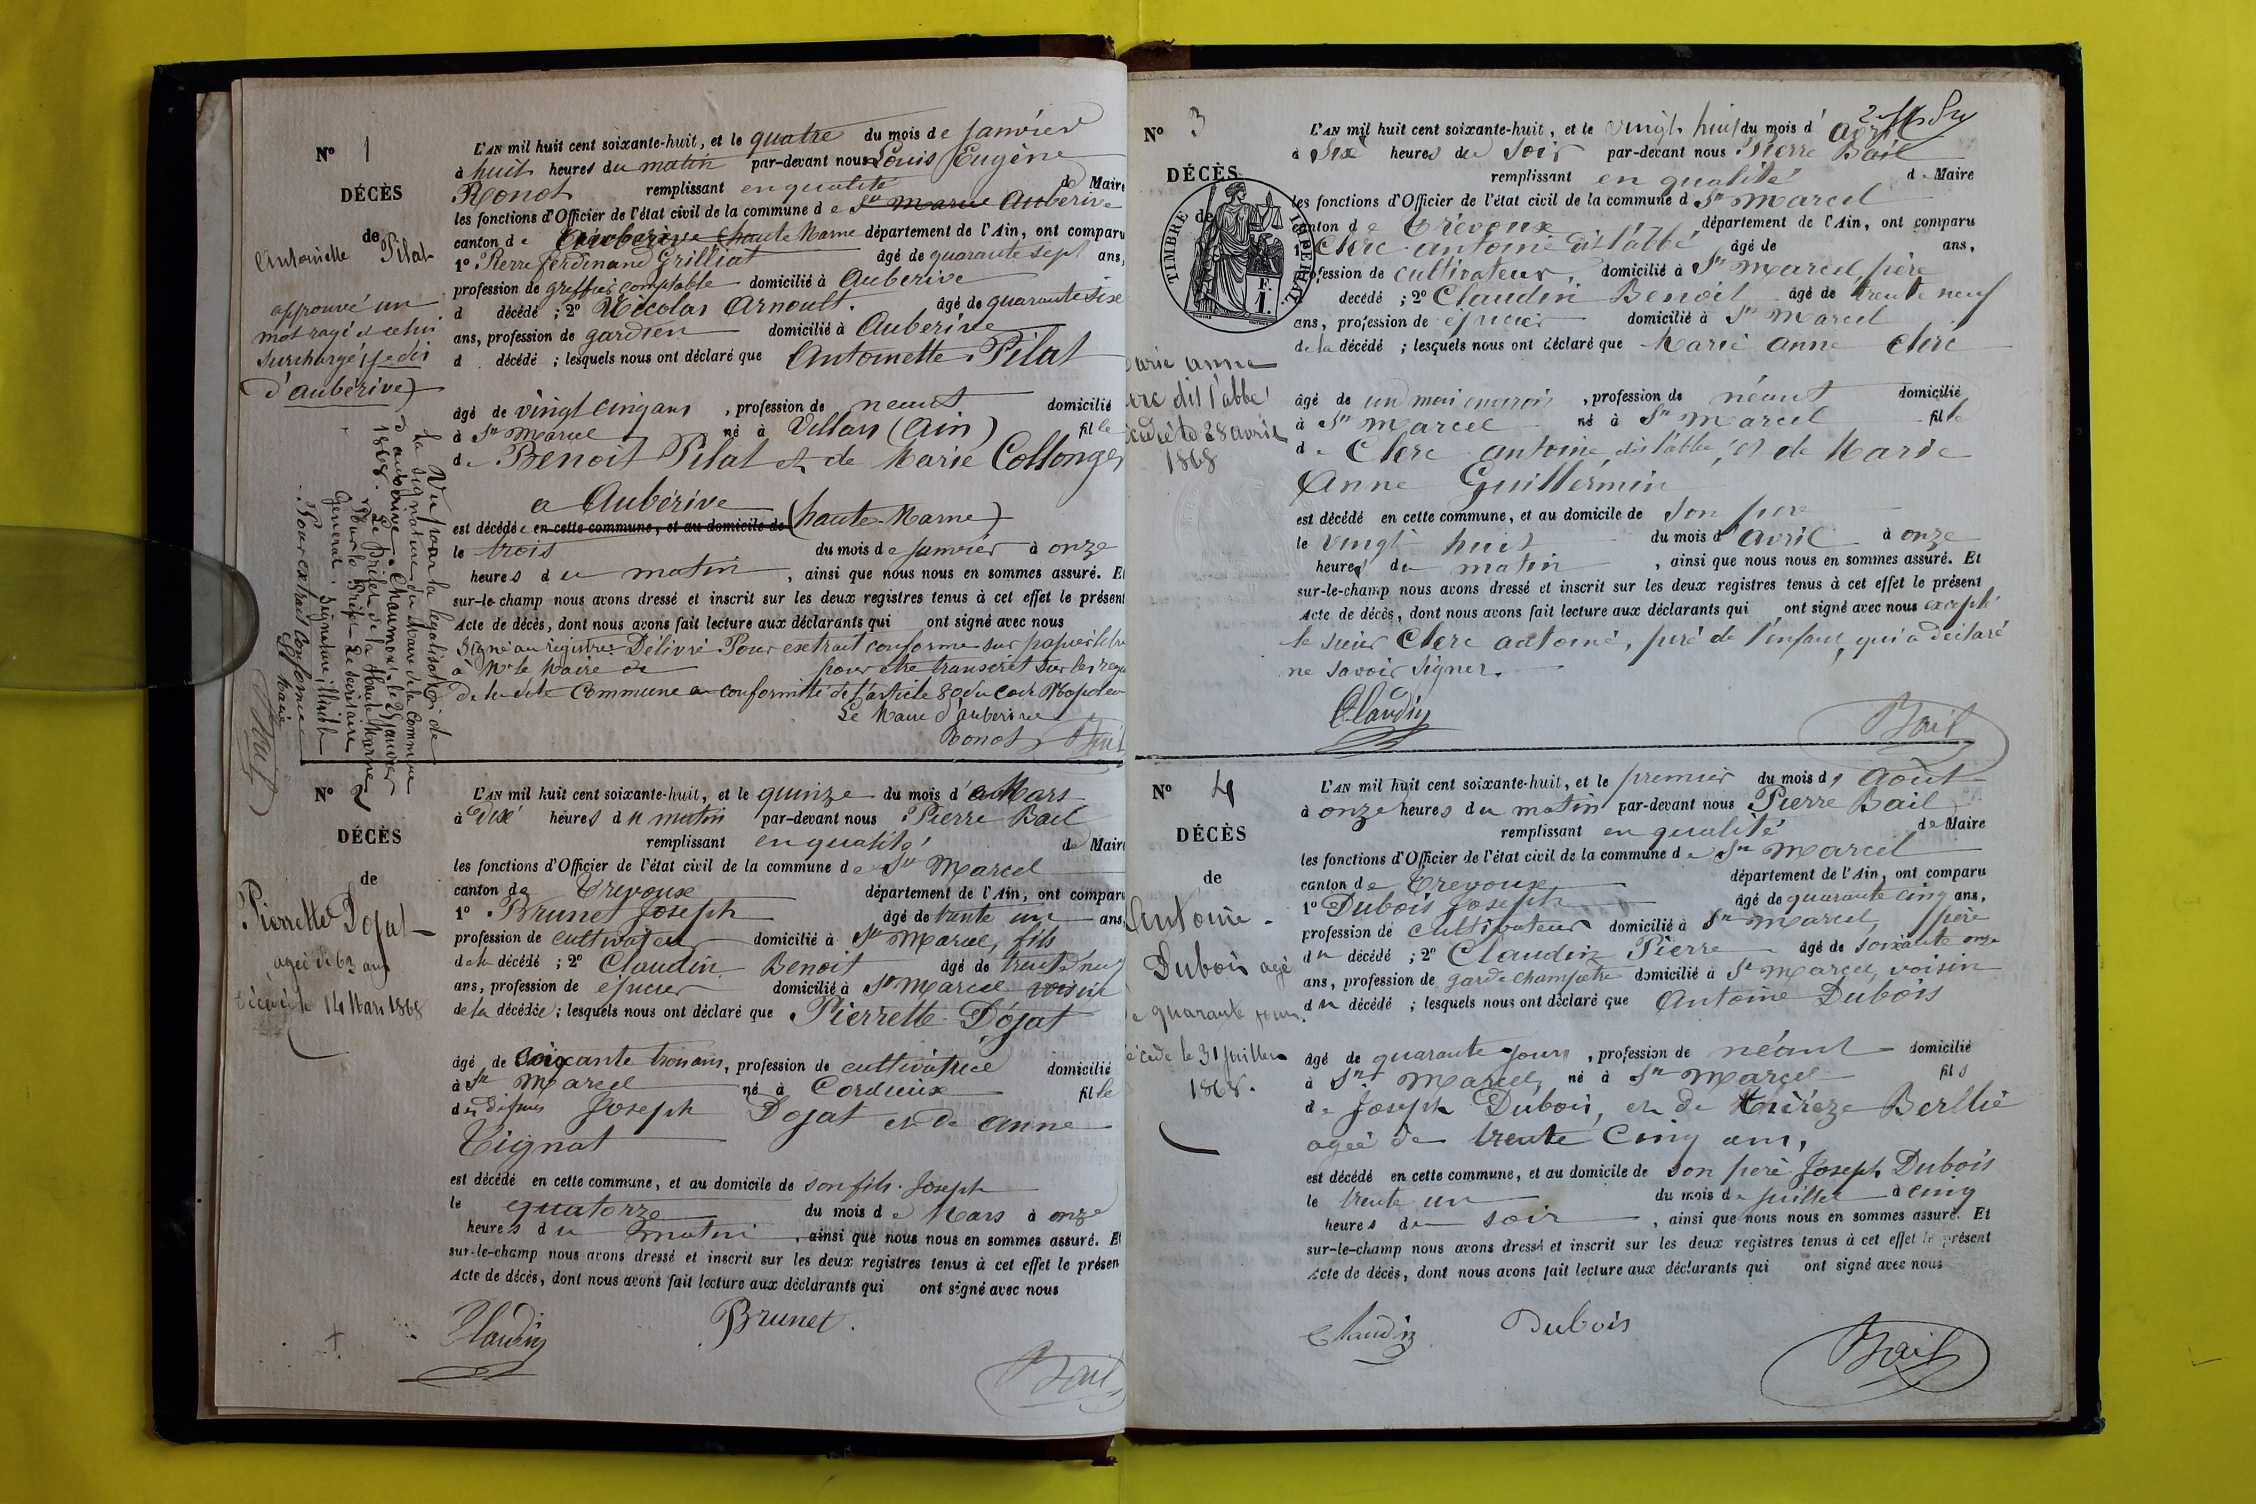 N° 1
DÉCÈS
de
Antoinette Pilat
approuvé un
mot rayé et celui
surchargé (je dis
d'aubérive)
Vu pour la légalisation de
la signature du Maire de la Commune
d'auberive. Chaumont le 28 Janvier
1868. Le Préfet de la Haute Marne
Pour le Préfet Le Secrétaire
Général. Signature illisible
Pour extrait conforme
Le Maire
Bail
L'AN mil huit cent soixante-huit, et le quatre du mois de Janvier
à huit heures du matin par-devant nous Louis Eugène
Ronot remplissant en qualité de Maire
les fonctions d'Officier de l'état civil de la commune de St Marcel Auberive
canton de Auberive haute Marne département de l'Ain, ont comparu
1° Pierre ferdinand Grilliat âgé de quarante sept ans,
profession de greffier comptable domicilié à Auberive
d décédé ; 2° Nicolas Arnoult. âgé de quarante six
ans, profession de gardien domicilié à Auberive
d décédé ; lesquels nous ont déclaré que Antoinette Pilat
âgé de vingt cinq ans, profession de néant domicilié
à St Marcel né à Villars (Ain) fille
de Benoit Pilat et de Marie Collonges
a Aubérive
est décédée en cette commune, et au domicile de (haute Marne)
le trois du mois de Janvier à onze
heures du matin, ainsi que nous nous en sommes assuré. Et
sur-le-champ nous avons dressé et inscrit sur les deux registres tenus à cet effet le présent
Acte de décès, dont nous avons fait lecture aux déclarants qui ont signé avec nous
Signé au registre Délivré Pour extrait conforme sur papier
à Mr le Maire de pour être transcrit sur les
de la dite Commune en conformité de l'article 80 du code Napoléon
Le Maire d'Auberive
Ronot Bail
N° 2
DÉCÈS
de
Pierrette Dojat
agée de 63 ans
Décédée le 14 Mars 1868
L'AN mil huit cent soixante-huit, et le quinze du mois d Mars
à dix heures du matin par-devant nous Pierre Bail
remplissant en qualité de Maire
les fonctions d'Officier de l'état civil de la commune de St Marcel
canton de Trévoux département de l'Ain, ont comparu
1° Brunet Joseph âgé de trente un ans,
profession de cultivateur domicilié à St Marcel, fils
de la décédé ; 2° Claudin Benoit âgé de trente neuf
ans, profession de épicier domicilié à St Marcel voisin
de la décédée ; lesquels nous ont déclaré que Pierrette Dojat
âgé de soixante trois ans, profession de cultivatrice domicilié
à St Marcel né à Cordieux fille
des défunts Joseph Dojat et de Anne
Tignat
est décédé en cette commune, et au domicile de son fils Joseph
le quatorze du mois de Mars à onze
heures du matin, ainsi que nous nous en sommes assuré. Et
sur-le-champ nous avons dressé et inscrit sur les deux registres tenus à cet effet le présent
Acte de décès, dont nous avons fait lecture aux déclarants qui ont signé avec nous
Claudin Brunet.
Bail
N° 3
DÉCÈS
de
TIMBRE IMPÉRIAL
1 F.
arie anne
erc dit l'abbé
cédée le 28 avril
1868
L'AN mil huit cent soixante-huit, et le vingt huit du mois d'avril
à six heures du soir par-devant nous Pierre Bail
remplissant en qualité de Maire
les fonctions d'Officier de l'état civil de la commune d St Marcel
canton de Trévoux département de l'Ain, ont comparu
1° Clerc antoine dit l'abbé âgé de ans,
profession de cultivateur, domicilié à St Marcel, père
décédé ; 2° Claudin Benoit âgé de trente neuf
ans, profession de épicier domicilié à St Marcel
de la décédé ; lesquels nous ont déclaré que Marie Anne Clerc
âgé de un mois environ, profession de néant domicilié
à St Marcel né à St Marcel fille
de Clerc antoine, dit l'abbé, et de Marie
Anne Guillermin
est décédé en cette commune, et au domicile de son père
le vingt huit du mois d'avril à onze
heures du matin, ainsi que nous nous en sommes assuré. Et
sur-le-champ nous avons dressé et inscrit sur les deux registres tenus à cet effet le présent
Acte de décès, dont nous avons fait lecture aux déclarants qui ont signé avec nous excepté
le sieur Clerc antoine, père de l'enfant, qui a déclaré
ne savoir signer.
Claudin
Bail
N° 4
DÉCÈS
de
Antoine
Dubois agé
de quarante jours.
écédé le 31 juillet
1868.
L'AN mil huit cent soixante-huit, et le premier du mois d'Août
à onze heures du matin par-devant nous Pierre Bail
remplissant en qualité de Maire
les fonctions d'Officier de l'état civil de la commune de St Marcel
canton de Trévoux département de l'Ain, ont comparu
1° Dubois Joseph âgé de quarante cinq ans,
profession de cultivateur domicilié à St Marcel, père
du décédé ; 2° Claudin Pierre âgé de soixante onze
ans, profession de garde champêtre domicilié à St Marcel, voisin
du décédé ; lesquels nous ont déclaré que Antoine Dubois
âgé de quarante jours, profession de néant domicilié
à St Marcel, né à St Marcel fils
de Joseph Dubois, et de Thérèze Berllié
agée de trente cinq ans,
est décédé en cette commune, et au domicile de son père Joseph Dubois
le trente un du mois de juillet à cinq
heures du soir, ainsi que nous nous en sommes assuré. Et
sur-le-champ nous avons dressé et inscrit sur les deux registres tenus à cet effet le présent
Acte de décès, dont nous avons fait lecture aux déclarants qui ont signé avec nous
Claudin Dubois
Bail